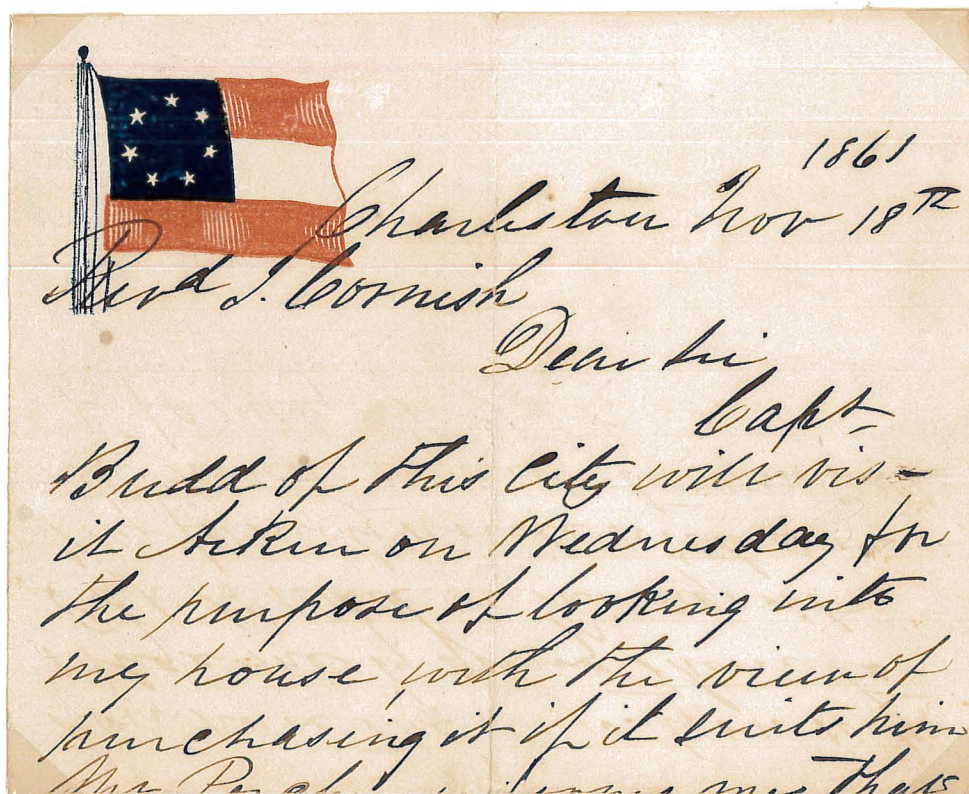 1861
Charleston Nov 18th
Revd J. Cornish
Dear Sir
Capt
Budd of this City will vis-
it Aiken on Wednesday for
the purpose of looking into
my house with the view of
purchasing it if it suits him
Mr me that